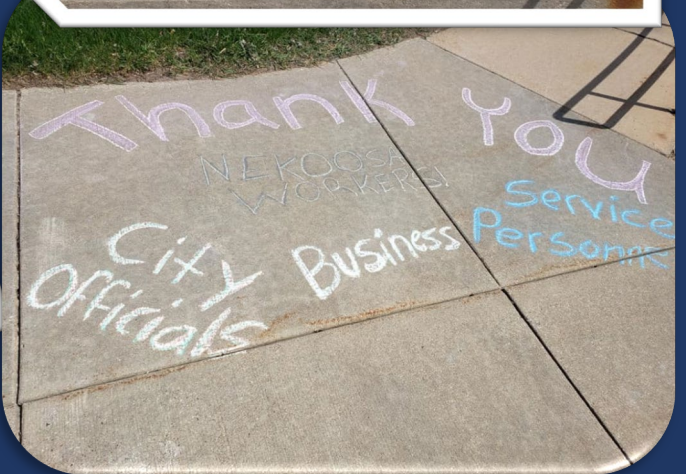 Thank You
NEKOOSA
WORKERS!
City
Officials
Business
Service